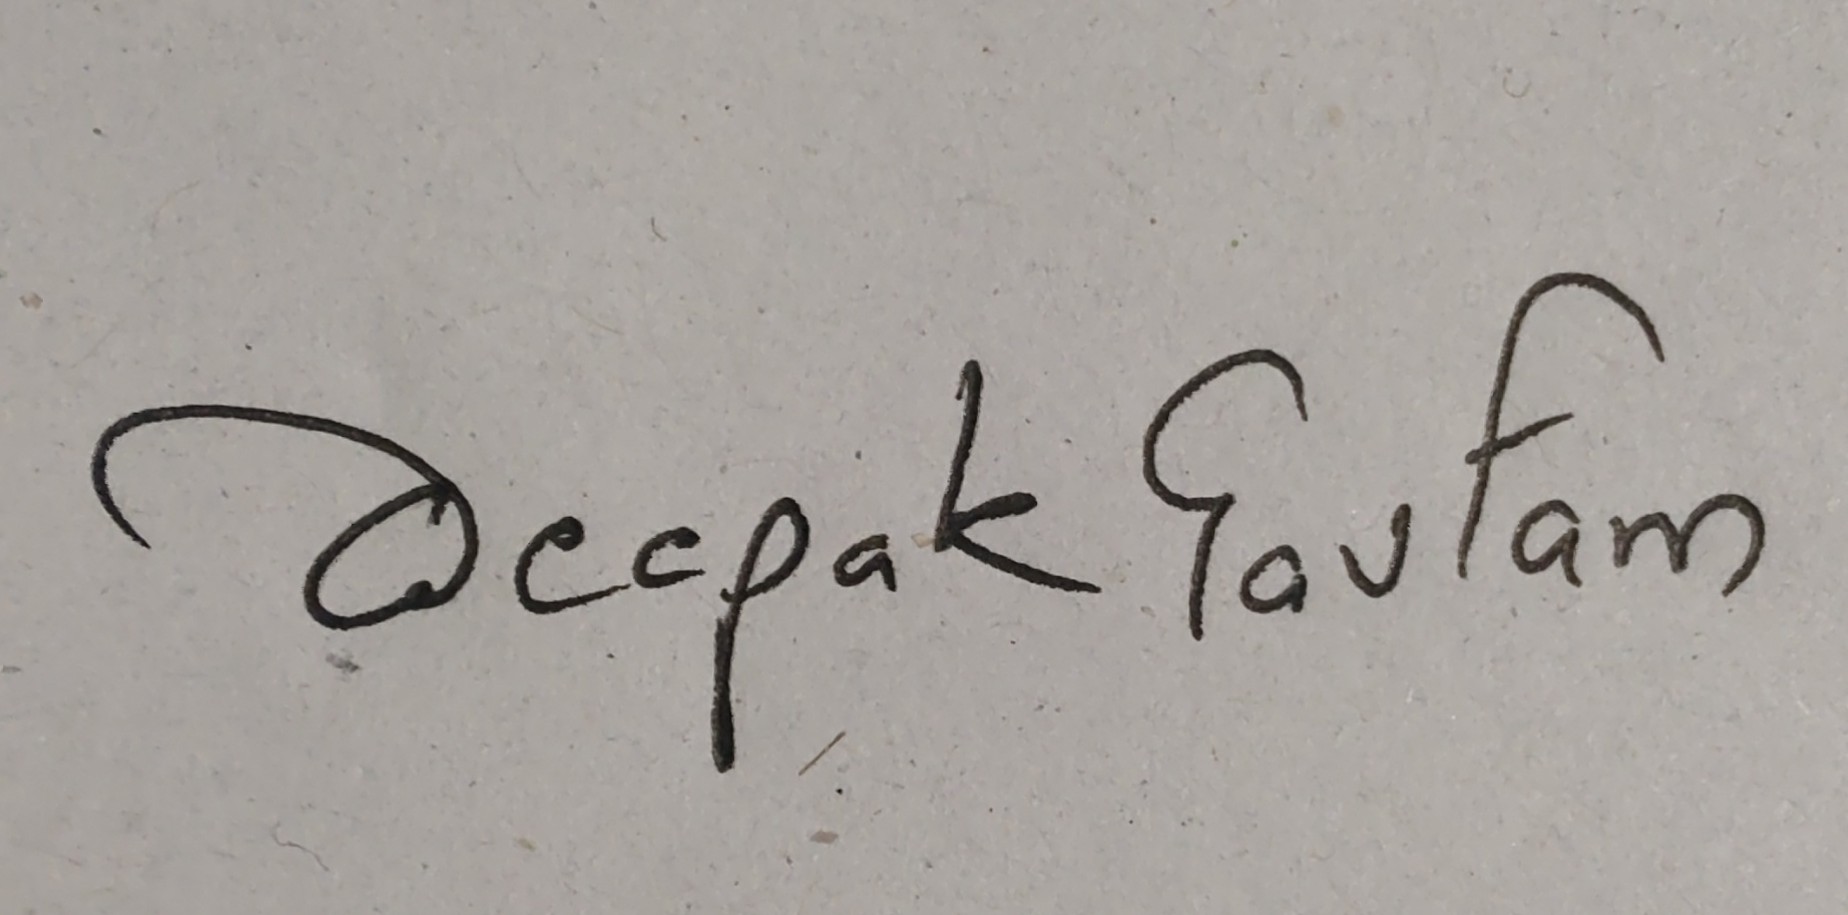 Deepak Gautam